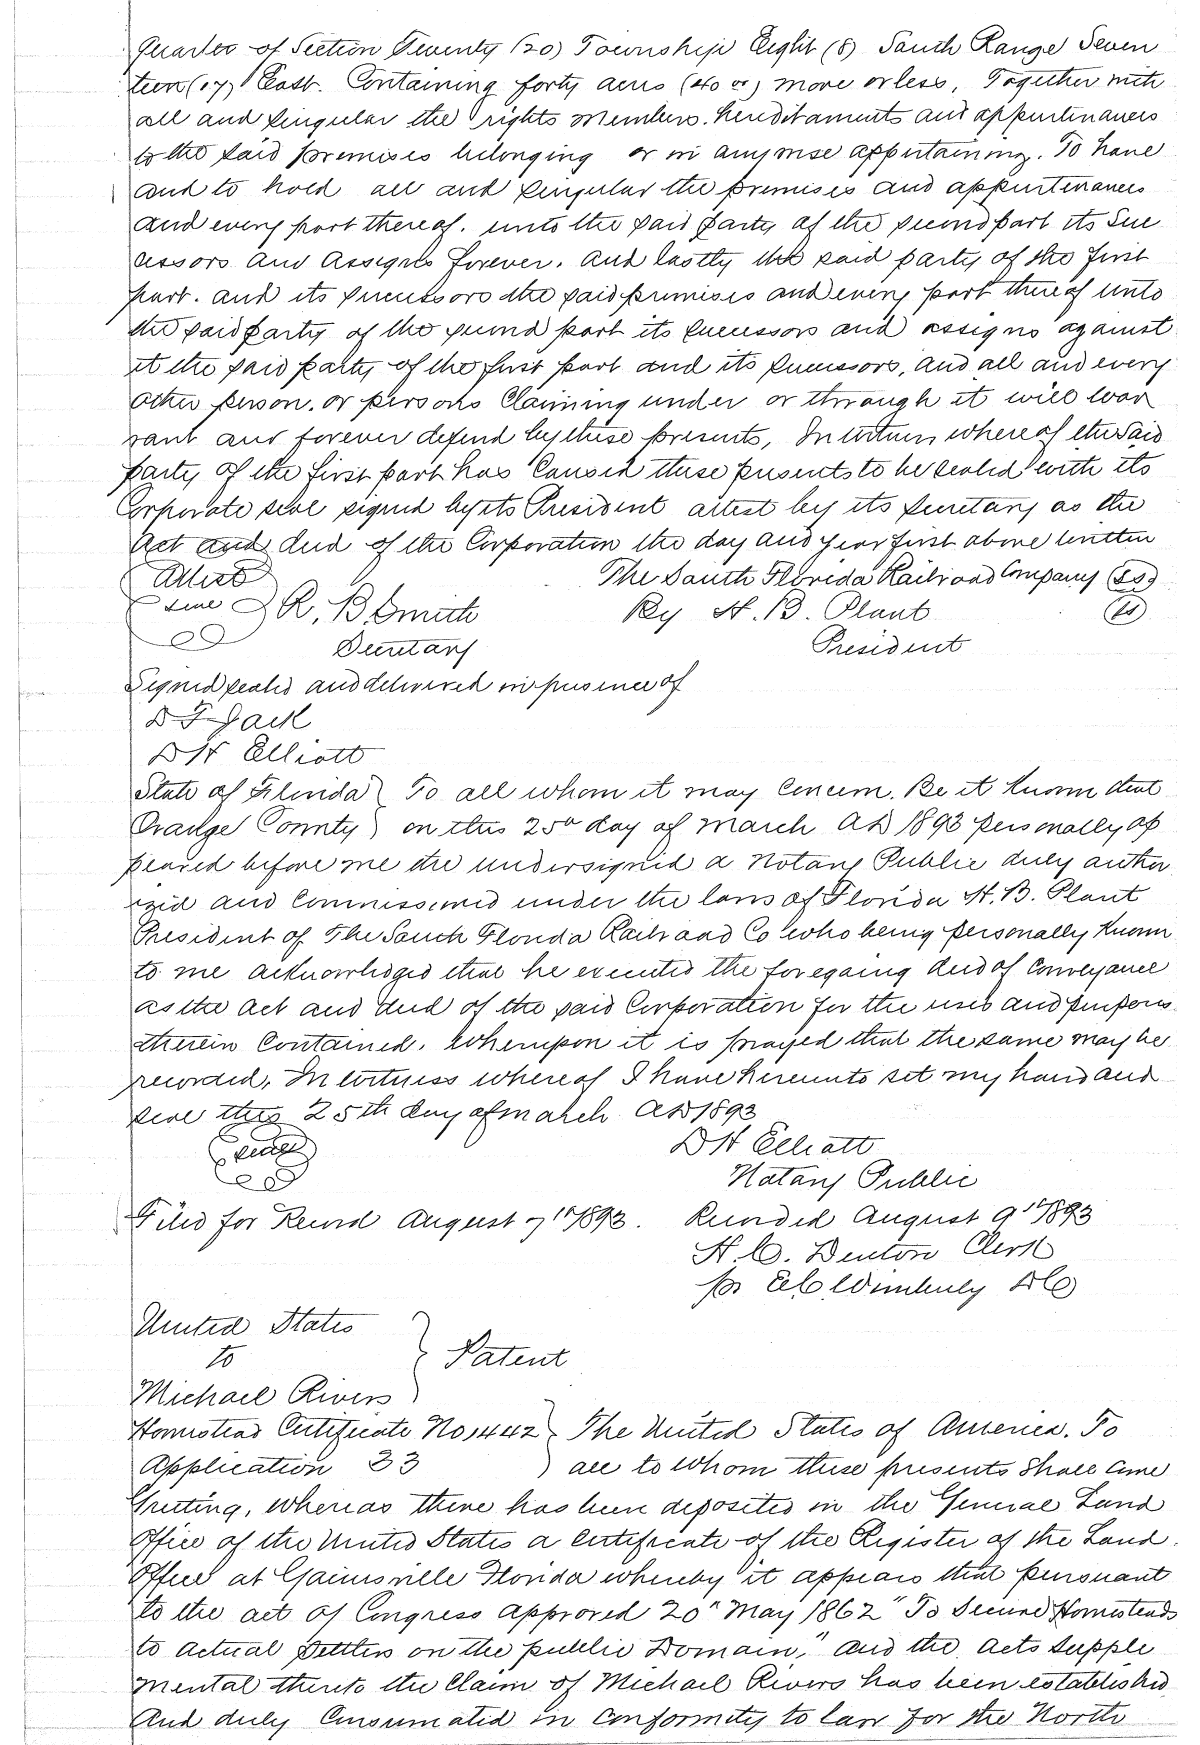 Quarter of Section Twenty (20) Township Eight (8) South Range Seven
teen (17) East. Containing forty acres (40 ac) more or less, Together with
all and singular the rights members. hereditaments and appurtenances
to the said premises belonging or in anywise appertaining. To have
and to hold all and singular the premises and appurtenances
and every part thereof. unto the said party of the second part its Suc
cessors and Assigns forever. And lastly the said party of the first
part. and its successors the said premises and every part thereof unto
the said party of the second part its successors and assigns against
it the said party of the first part and its successors, and all and every
other person. or persons Claiming under or through it will war
rant and forever defend by these presents, In witness whereof the said
party of the first part has Caused these presents to be sealed with its
Corporate seal signed by its President attest by its Secretary as the
Act and deed of the Corporation the day and year first above written
Attest The South Florida Railroad Company (LS)
Seal R. B. Smith By H. B. Plant (LS)
Secretary President
Signed sealed and delivered in presence of
D F Jack
D H Elliott
State of Florida } To all whom it may Concern. Be it known that
Orange County } on this 25th day of March AD 1893 personally ap
peared before me the undersigned a Notary Public duly author
ized and Commissioned under the laws of Florida H. B. Plant
President of The South Florida Railroad Co who being personally known
to me acknowledged that he executed the foregoing deed of Conveyance
as the act and deed of the said Corporation for the uses and purposes
therein Contained. Whereupon it is prayed that the same may be
recorded. In witness whereof I have hereunto set my hand and
seal this 25th day of march AD 1893
Seal D H Elliott
Notary Public
Filed for Record August 7th 1893. Recorded August 9th 1893
H. C. Denton Clerk
pr E C Wimberly DC
United States
to } Patent
Michael Rivers
Homestead Certificate No 1442 } The United States of America. To
Application 33 } all to whom these presents shall come
Greeting, Whereas there has been deposited in the General Land
Office of the United States a Certificate of the Register of the Land
Office at Gainesville Florida whereby it appears that pursuant
to the act of Congress approved 20th May 1862 "To Secure Homesteads
to actual Settlers on the public Domain," and the Acts Supple
mental thereto the Claim of Michael Rivers has been established
And duly Consumated in Conformity to law for the North